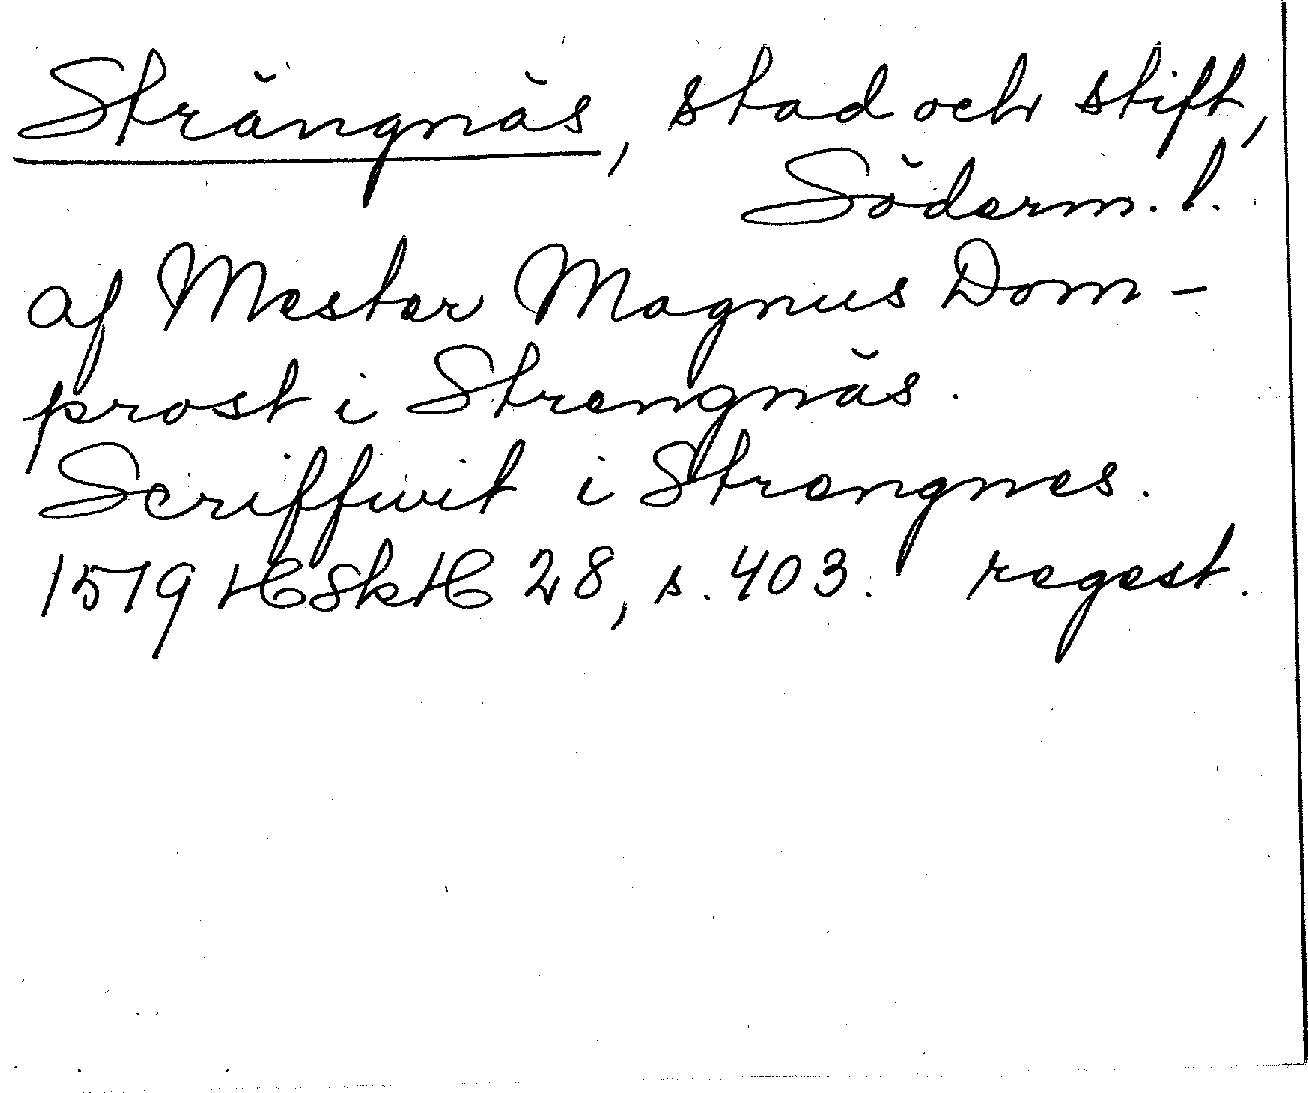 Strängnäs, stad och stift,
Söderm. l.
af Mester Magnus Dom-
prost i Strengnäs.
Scriffwit i Strengnes.
1579 HSkH 28, s. 403. regest.